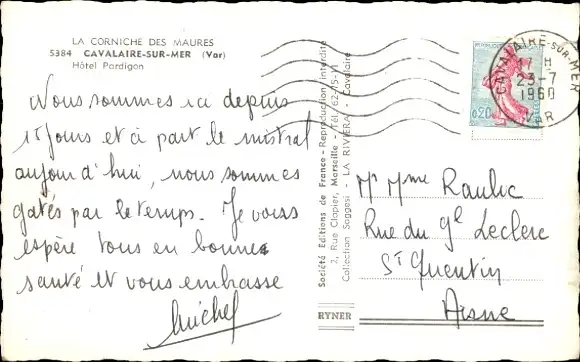 LA CORNICHE DES MAURES
5384 CAVALAIRE-SUR-MER (Var)
Hôtel Pardigon
Nous sommes ici depuis
15 jours et à part le mistral
aujourd'hui, nous sommes
gatés par le temps. Je vous
espère tous en bonne
santé et vous embrasse
Michel
Société Editions de France - Reproduction interdite
2, Rue Clapier, Marseille - Tél. 62/15-11
Collection Soggesi - LA RIVIERA - Cavalaire
RYNER
CAVALAIRE-SUR-MER
17 H
23-7
1960
VAR
0,20
Mr Mme Raulic
Rue du Gl Leclerc
St Quentin
Aisne